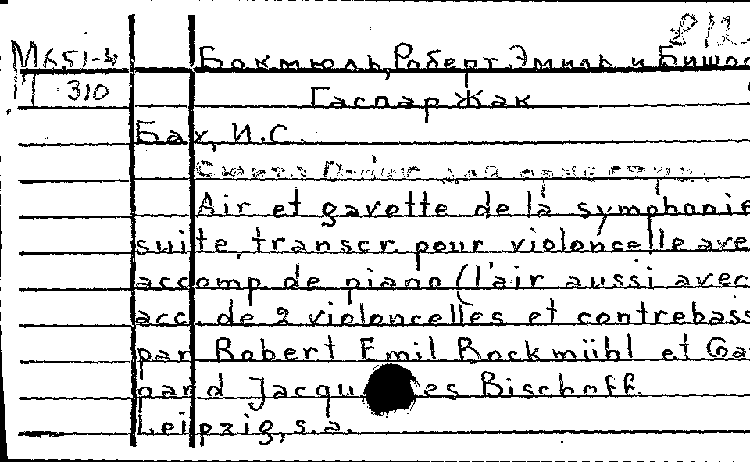 812
М651-4 Бокмюль, Роберт Эмиль и Бишо
П 310 Гаспар Жак
Бах, И.С.
Сюита для оркестра.
Air et gavotte de la symphonie
suite, transcr. pour violoncelle ave
accomp. de piano (l'air aussi avec
acc. de 2 violoncelles et contrebass
par Robert Emil Bockmühl et Ga
pard Jacques Bischoff.
Leipzig, s.a.